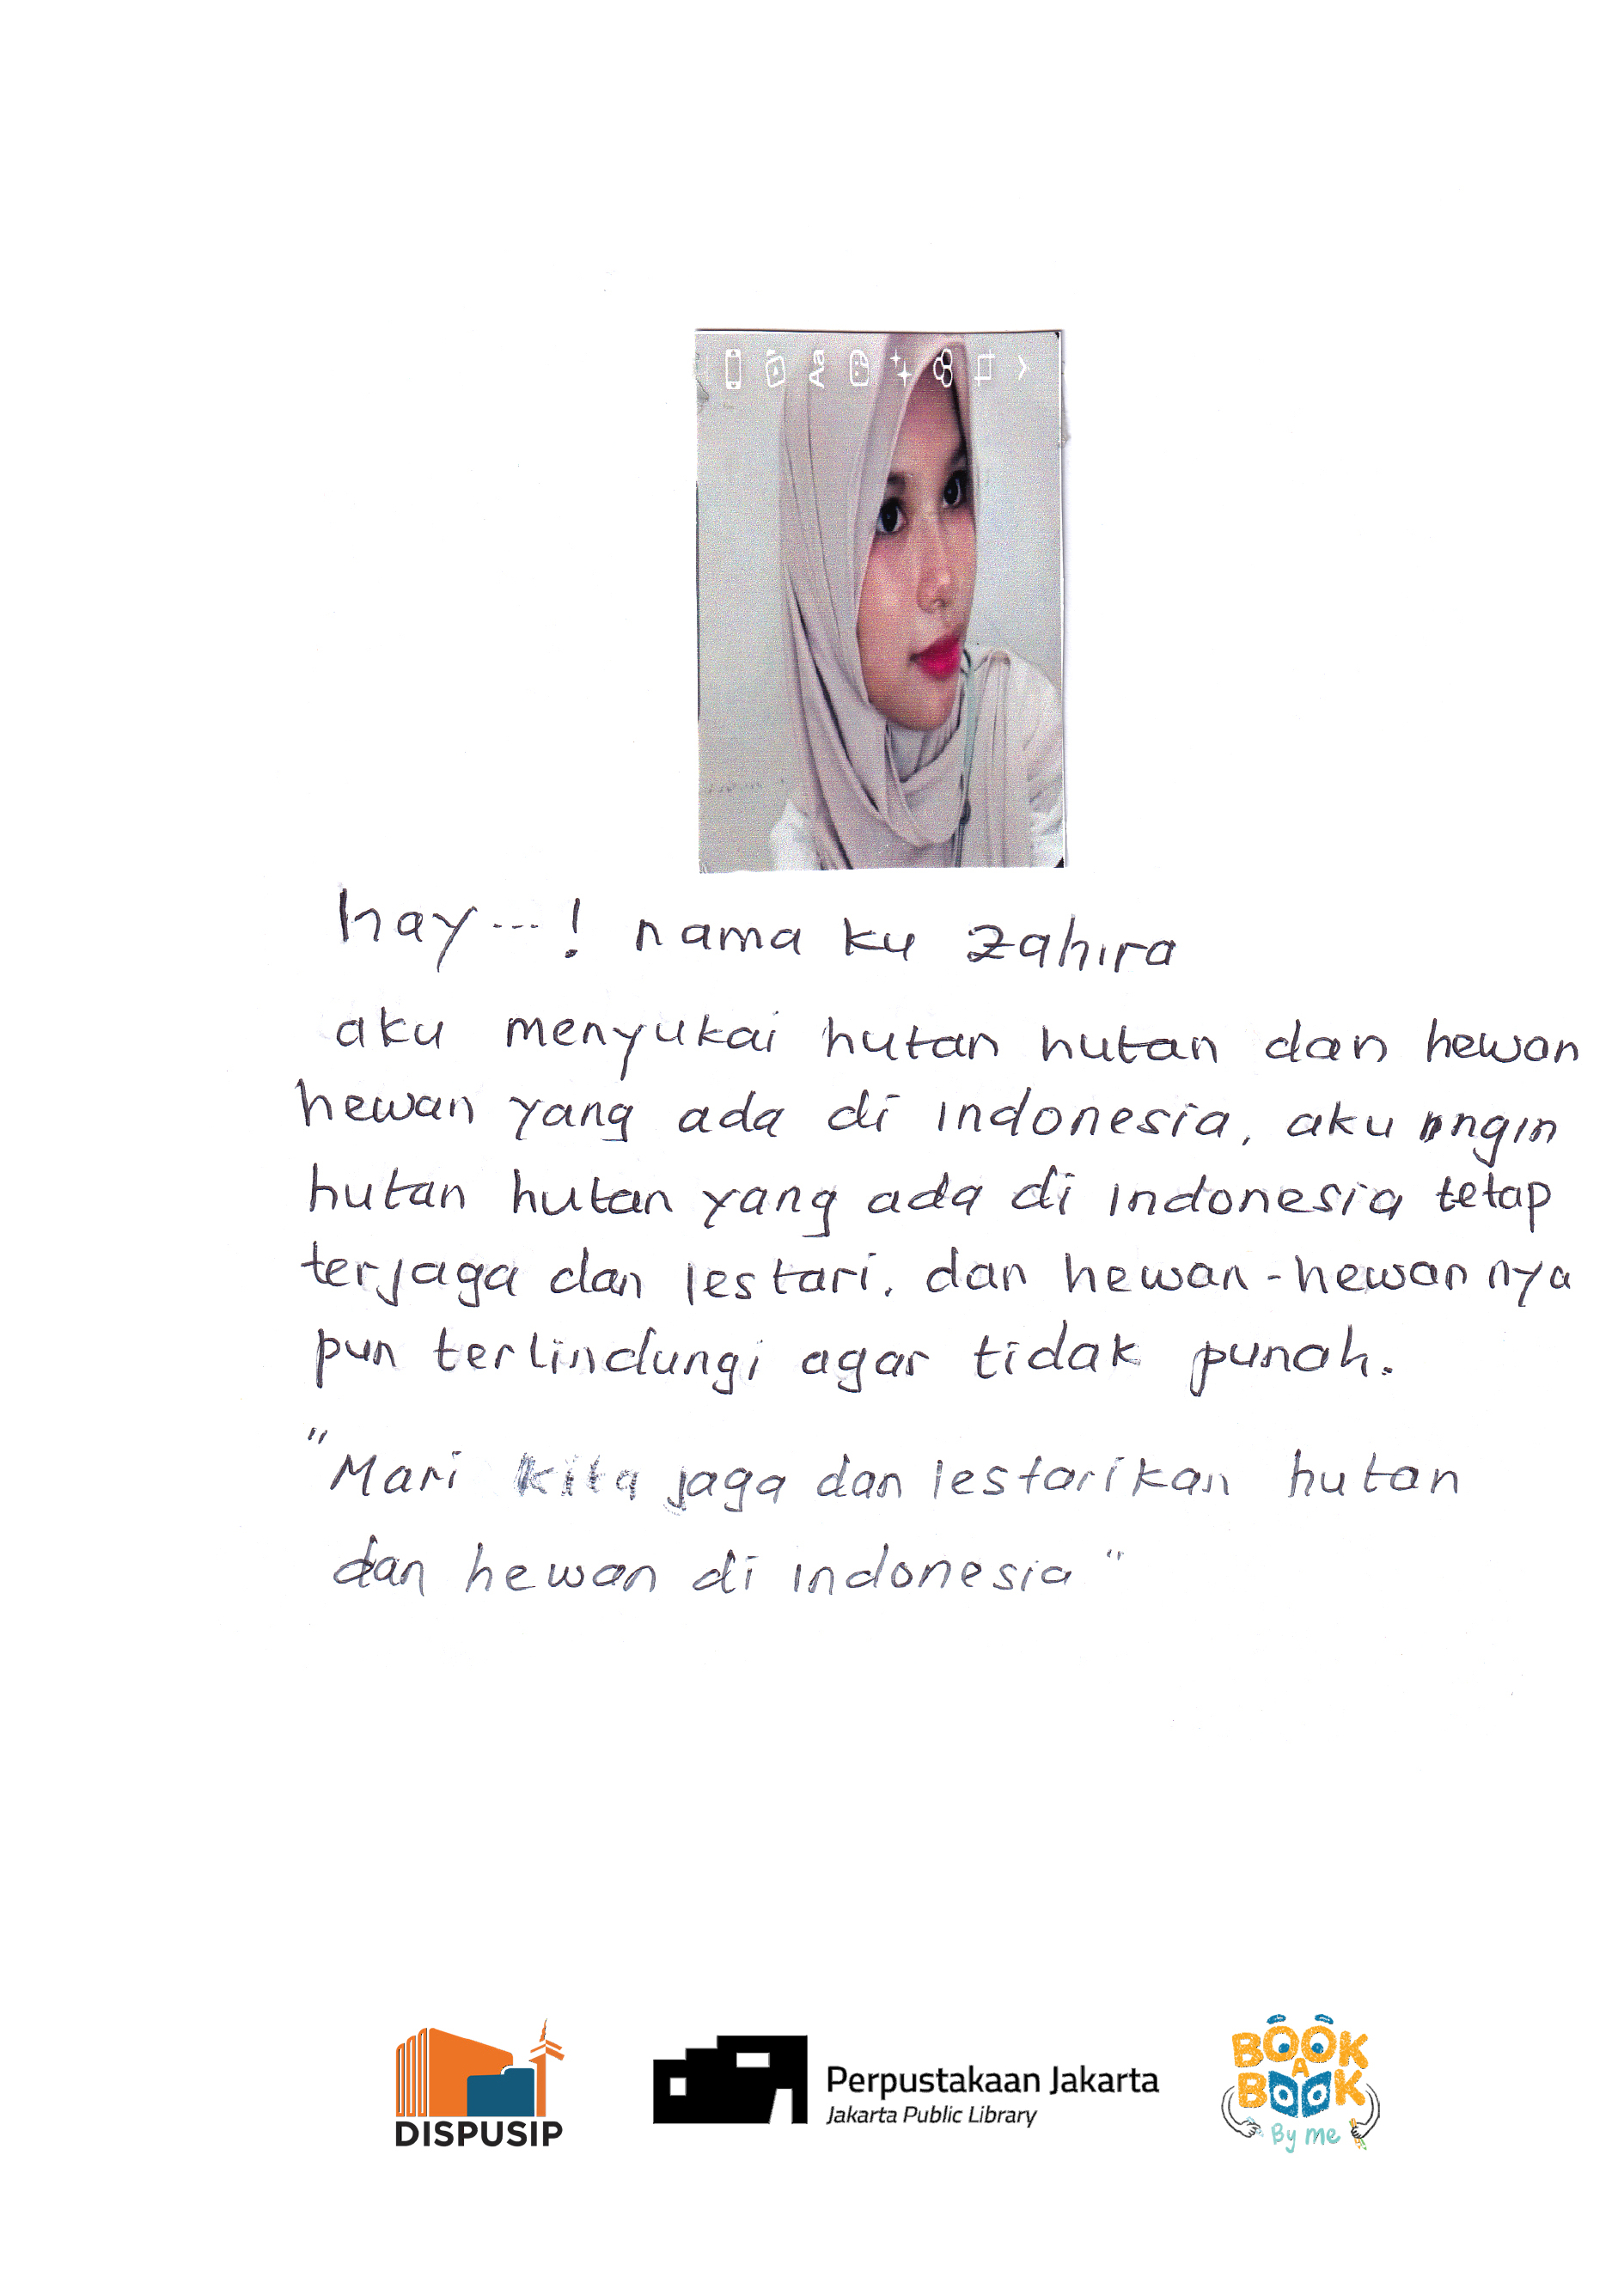 hay...! nama ku zahira
aku menyukai hutan hutan dan hewan
hewan yang ada di indonesia, aku ingin
hutan hutan yang ada di indonesia tetap
terjaga dan lestari. dan hewan-hewan nya
pun terlindungi agar tidak punah.
"Mari kita jaga dan lestarikan hutan
dan hewan di indonesia"
DISPUSIP
Perpustakaan Jakarta
Jakarta Public Library
BOOK
A
BOOK
By me